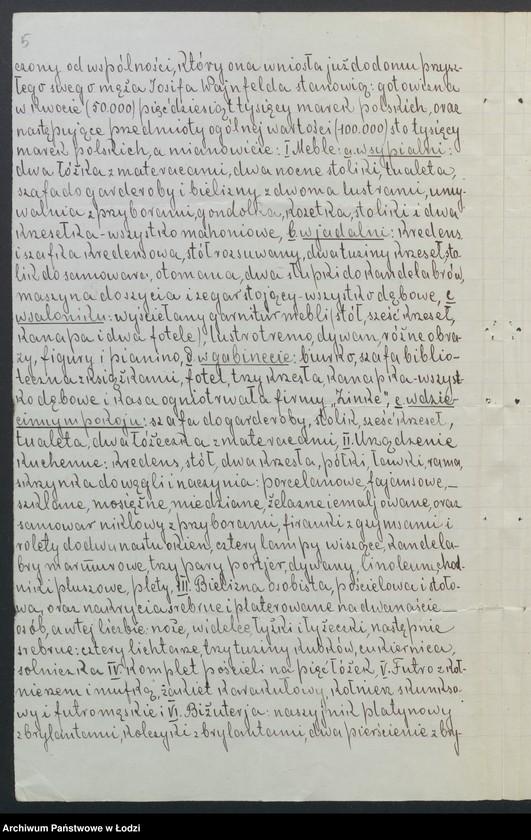 5
czony od wspólności, który ona wniosła już do domu przysz-
łego swego męża Josifa Wajnfelda stanowią: gotowizna
w kwocie (50.000) pięćdziesiąt tysięcy marek polskich, oraz
następujące przedmioty ogólnej wartości (100.000) sto tysięcy
marek polskich, a mianowicie: I Meble: a. w sypialni:
dwa łóżka z materacami, dwa nocne stoliki, tualeta,
szafa do garderoby i bielizny z dwoma lustrami, umy-
walnia z przyborami, gondolka, kozetka, stoliki i dwa
krzesełka - wszystko mahoniowe, b. w jadalni: kredens
i szafka kredensowa, stół rozsuwany, dwa tuziny krzeseł, sto-
lik do samowaru, otomana, dwa słupki do kandelabrów,
maszyna do szycia i zegar stojący - wszystko dębowe, c
w saloniku: wyściełany garnitur mebli (stół, sześć krzeseł,
kanapa i dwa fotele), lustro tremo, dywan, różne obra-
zy, figury i pianino, d w gabinecie: biurko, szafa biblio-
teczna z książkami, fotel, trzy krzesła, kanapka - wszyst-
ko dębowe i kasa ogniotrwała firmy "Zinke", e w dzie-
cinnym pokoju: szafa do garderoby, stolik, sześć krzeseł,
tualeta, dwa łóżeczka z materacami, II. Urządzenie
kuchenne: kredens, stół, dwa krzesła, półki, ławki, rama,
skrzynka do węgli i naczynia: porcelanowe, fajansowe,
szklane, mosiężne, miedziane, żelazne i emaljowane, oraz
samowar niklowy z przyborami, firanki z gzymsami i
rolety do dwunastu okien, cztery lampy wiszące, kandela-
bry marmurowe, trzy pary portjer, dywany, linoleum, chod-
niki pluszowe, plety, III. Bielizna osobista, pościelowa i stoło-
wa, oraz nakrycia srebrne i platerowane na dwanaście
osób, a w tej liczbie: noże, widelce, łyżki i łyżeczki, następnie
srebrne: cztery lichtarze, trzy tuziny kubków, cukiernica,
solniczka IV. Komplet pościeli na pięć łóżek, V. Futro z koł-
nierzem i mufką, żakiet karakułowy, kołnierz skunkso-
wy i futro męskie i VI. Biżuterja: naszyjnik platynowy
z brylantami, kolczyki z brylantami, dwa pierścienie z bry-
Archiwum Państwowe w Łodzi